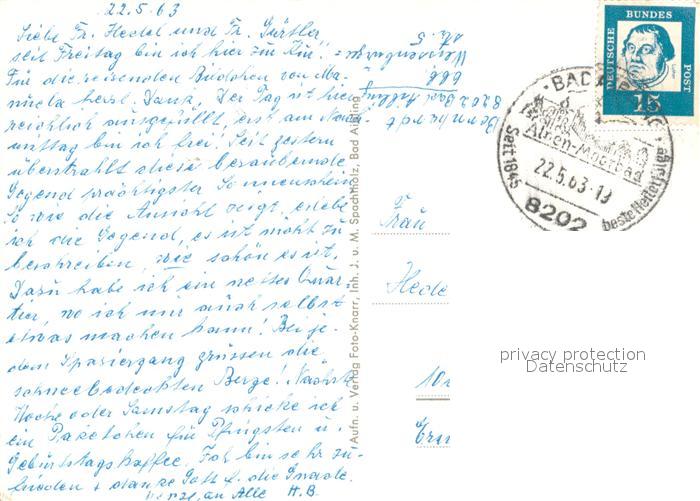 22.5.63
Liebe Fr. Hedel und Fr. Gürtler
seit Freitag bin ich hier zu Kur.
Für die reizenden Bildchen von Ma-
nuela herzl. Dank. Der Tag ist hier
reichlich ausgefüllt, erst am Nach-
mittag bin ich frei. Seit gestern
überstrahlt diese bezaubernde
Gegend prächtigster Sonnenschein
So wie die Ansicht zeigt, erlebe
ich die Gegend, es ist nicht zu
beschreiben, wie schön es ist.
Dazu habe ich ein nettes Quar-
tier, wo ich mir auch selbst
etwas machen kann. Bei je-
dem Spaziergang grüssen die
schneebedeckten Berge! Nächste
Woche oder Samstag schicke ich
ein Paketchen für Pfingsten u.
Geburtstagskaffee. Ich bin sehr zu-
frieden + danke Gott f. die Gnade.
an Alle H.B.
8202 Bad Aibling
Aufn. u. Verlag Foto-Knarr, Inh. J. u. M. Spachtholz, Bad Aibling
DEUTSCHE BUNDESPOST
Luther
15
BAD
Seit 1845
22.5.63-19
beste Heilerfolge
8202
Frau
Hede
privacy protection
Datenschutz